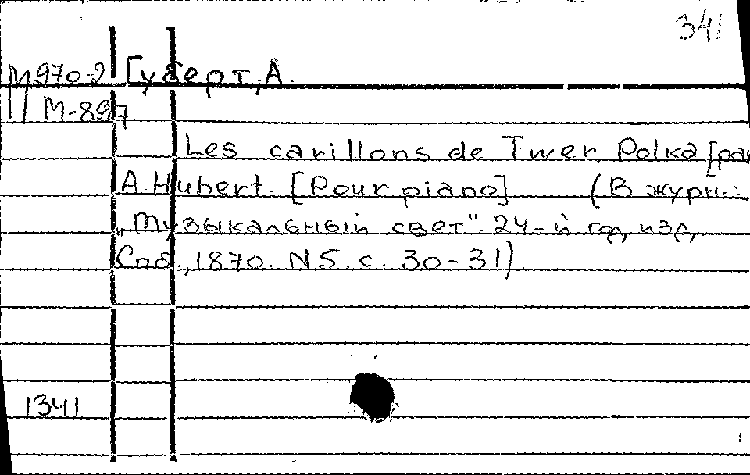 341
М970-2 Губерт, А.
М-897
Les carillons de Twer Polka [par
A. Hubert. [Pour piano] (В журн.:
„Музыкальный свет". 24-й год изд.
Спб., 1870. N 5. с. 30-31)
1341